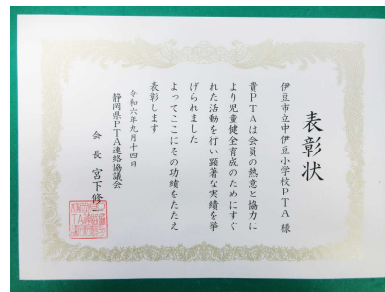 表彰状
伊豆市立中伊豆小学校PTA 様
貴PTAは会員の熱意と協力に
より児童健全育成のためにすぐ
れた活動を行い顕著な実績を挙
げられました
よってここにその功績をたたえ
表彰します
令和六年九月十四日
静岡県PTA連絡協議会
会長 宮下修一